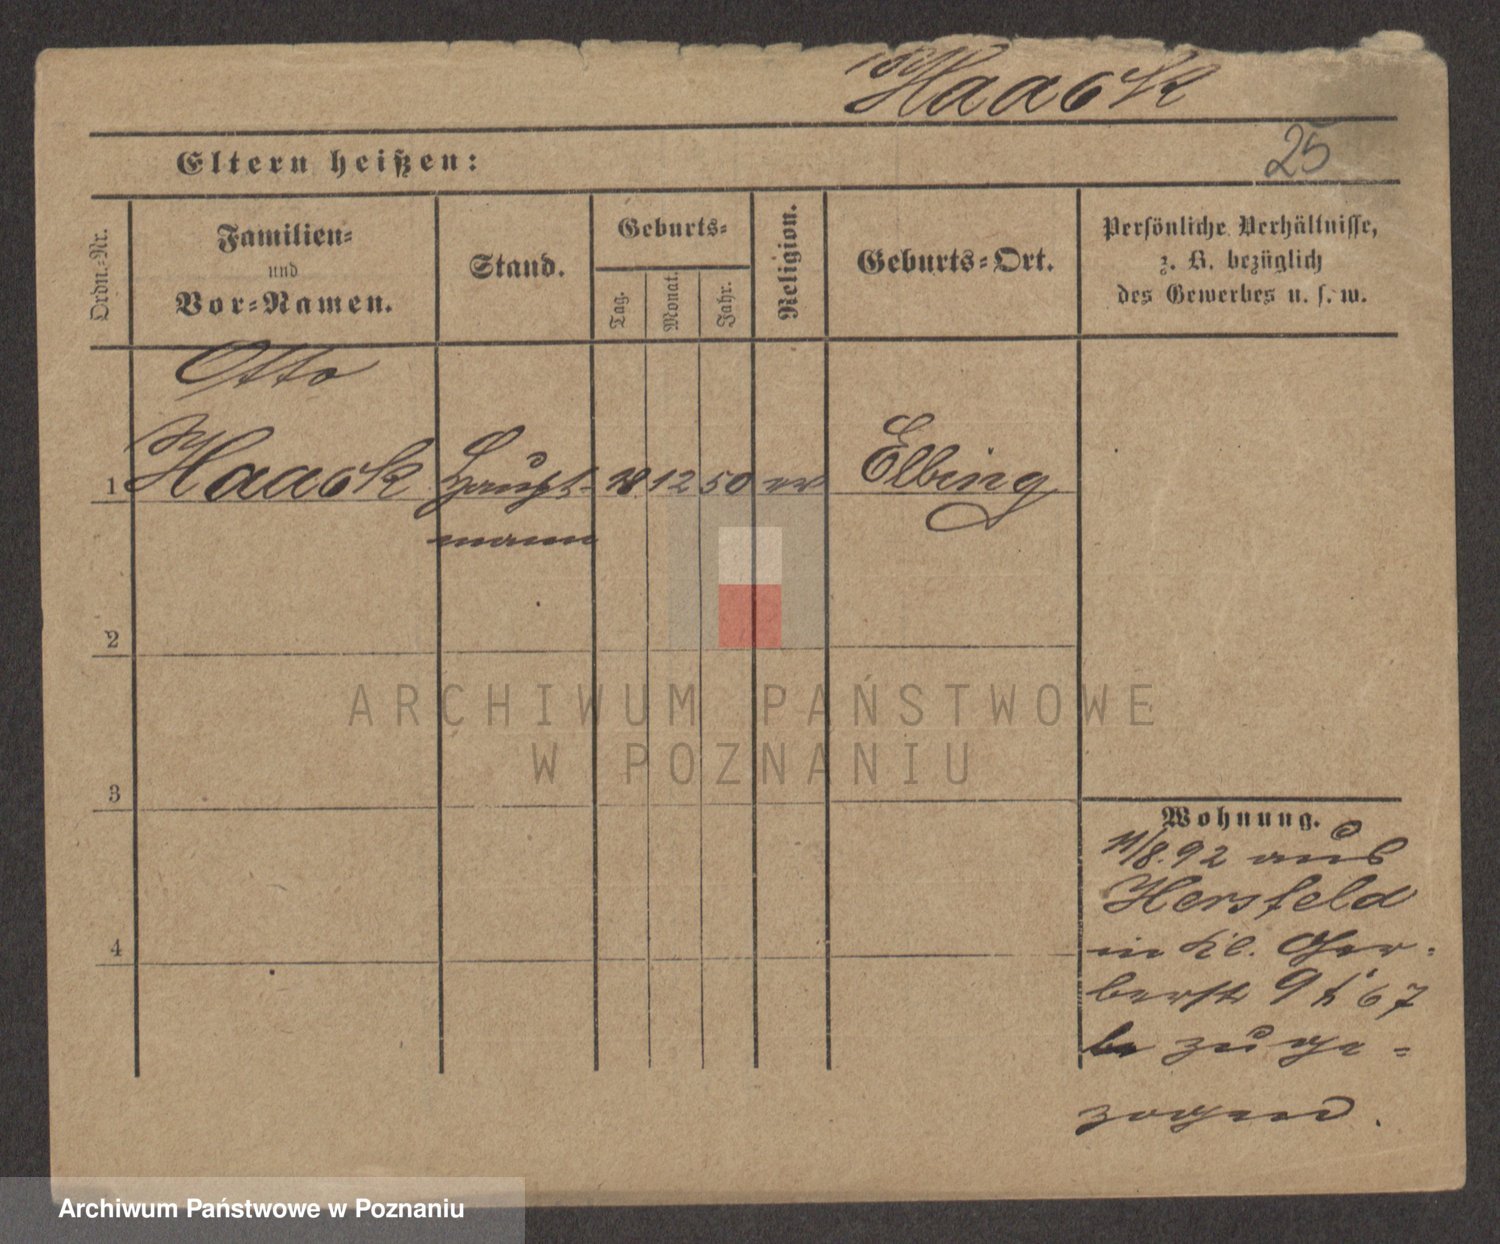 Haack
25
Eltern heißen:
Ordn.-Nr.
Familien-
und
Vor-Namen.
Stand.
Geburts-
Tag.
Monat.
Jahr.
Religion.
Geburts-Ort.
Persönliche Verhältnisse,
z. B. bezüglich
des Gewerbes u. s. w.
Otto
1 Haack Haupt- 12 50 ev Elbing
mann
2
3
4
Wohnung.
11/8. 92 aus
Hersfeld
in Kl. Ger-
berstr 9
zuge-
zogen.
ARCHIWUM PAŃSTWOWE
W POZNANIU
Archiwum Państwowe w Poznaniu